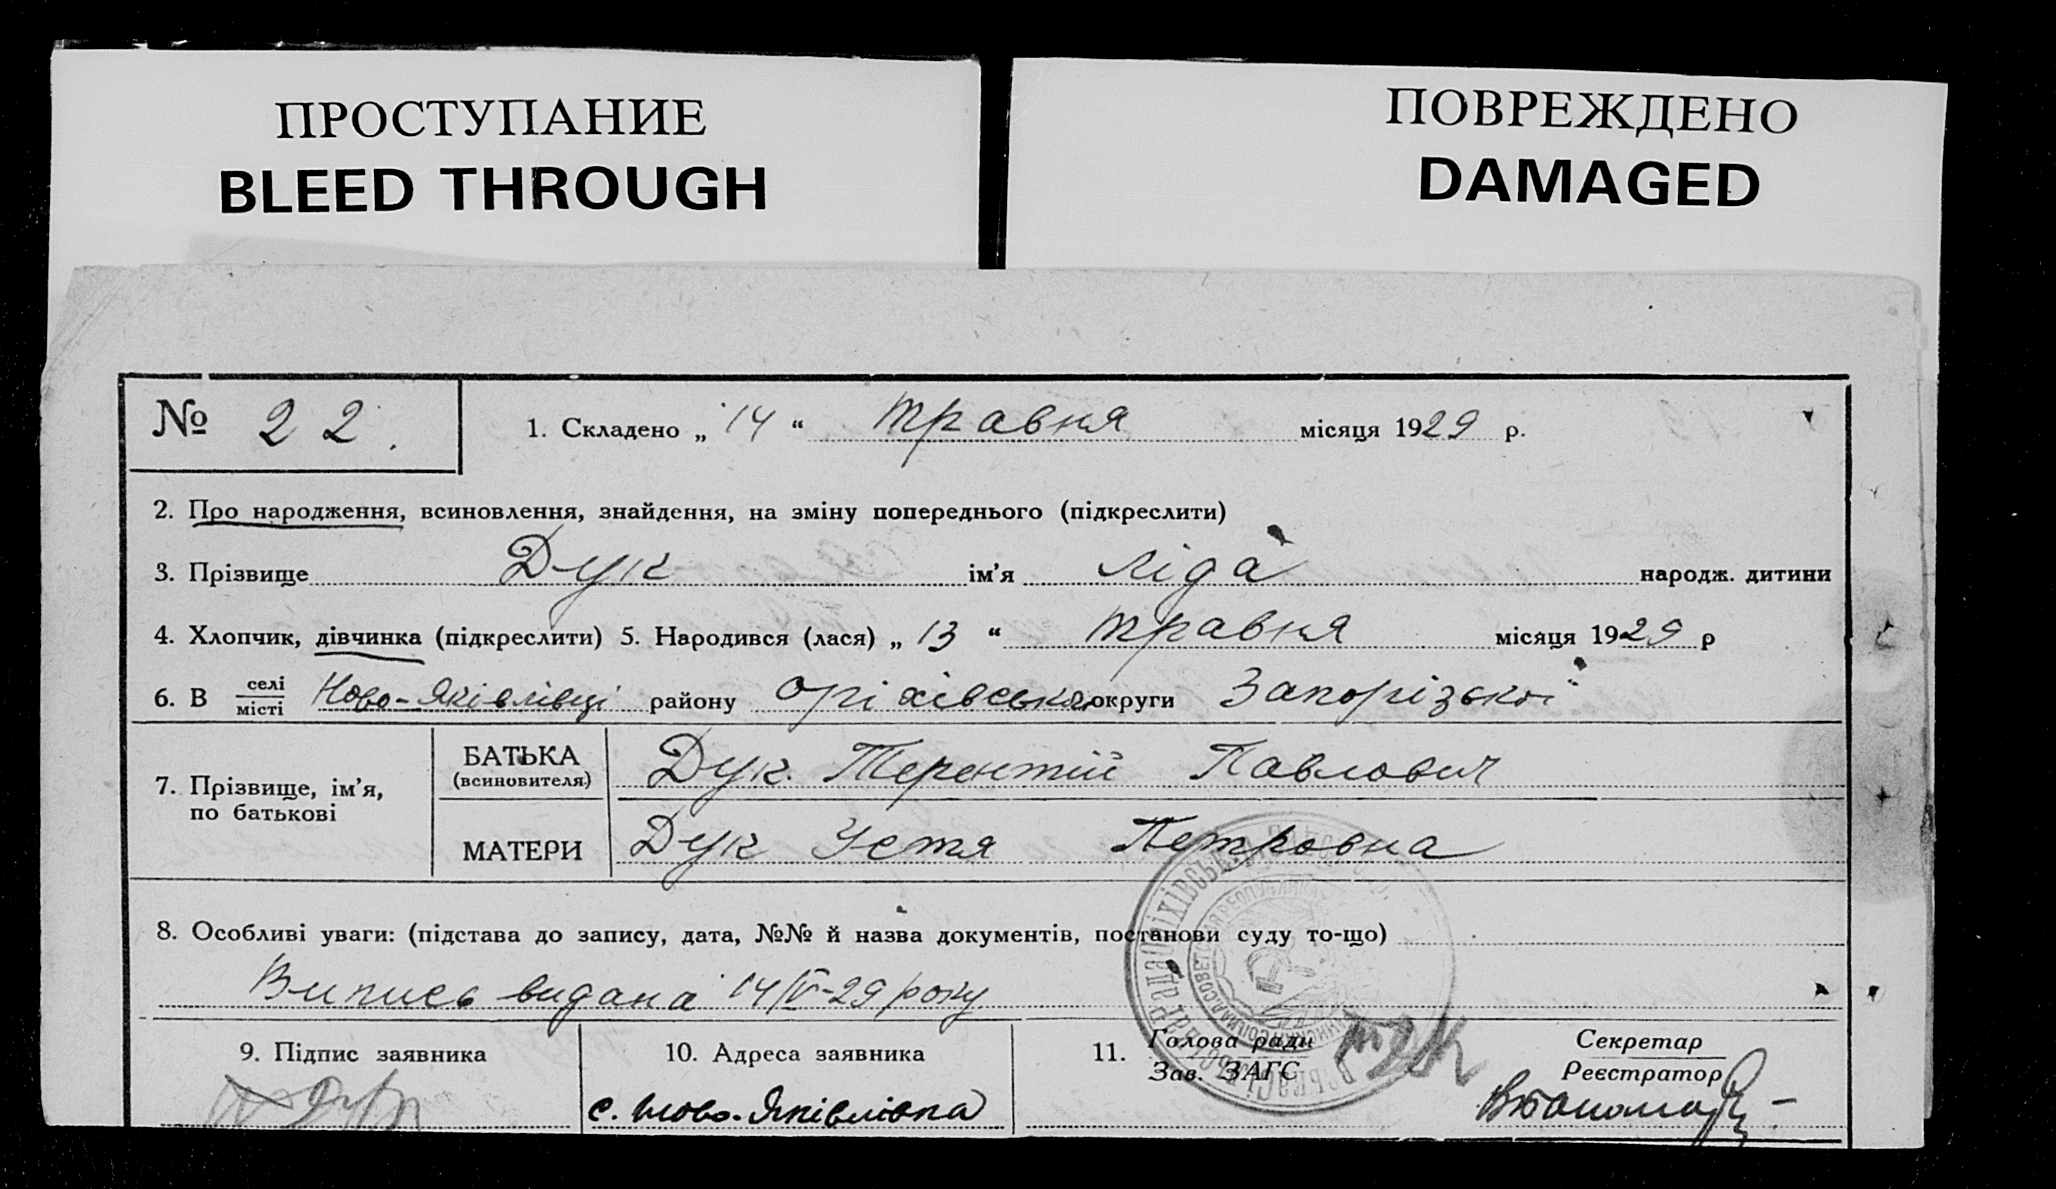 ПРОСТУПАНИЕ
BLEED THROUGH
ПОВРЕЖДЕНО
DAMAGED
№ 22.
1. Складено „14“ травня місяця 1929 р.
2. Про народження, всиновлення, знайдення, на зміну попереднього (підкреслити)
3. Прізвище Дук ім'я Ліда народж. дитини
4. Хлопчик, дівчинка (підкреслити) 5. Народився (лася) „13“ травня місяця 1929 р
6. В селі місті Ново-Яківлівці району Оріхівська округи Запорізької
7. Прізвище, ім'я, по батькові
БАТЬКА (всиновителя) Дук Терентій Павлович
МАТЕРИ Дук Устя Петровна
8. Особливі уваги: (підстава до запису, дата, №№ й назва документів, постанови суду то-що)
Випись видана 14/V-29 року
9. Підпис заявника
10. Адреса заявника
с. Ново-Яківлівка
11. Голова ради
Зав. ЗАГС
Секретар
Реєстратор